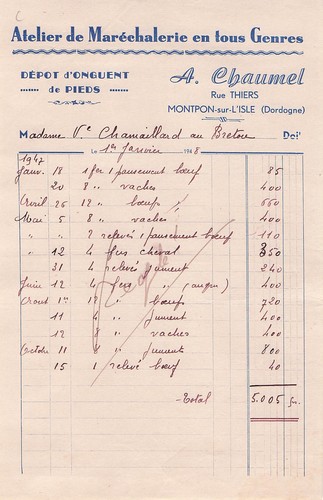 Atelier de Maréchalerie en tous Genres
DÉPOT d'ONGUENT
de PIEDS
A. Chaumel
Rue THIERS
MONTPON-sur-L'ISLE (Dordogne)
Madame Vᵉ Chamaillard au Breton Doit
Le 1er Janvier 1948
1947
Janv. 18 1 fer 1 pansement bœuf 85
20 8 " vaches 400
Avril 26 12 " bœufs 660
Mai 5 8 " vaches 400
" " 2 relevés 1 pansement bœuf 110
" 12 4 fers cheval 350
31 4 relevé jument 240
Juin 12 4 fers " 400
Aout 1er 12 " bœufs 720
11 4 " jument 400
12 8 " vaches 400
Octobre 11 8 " juments 800
15 1 relevé bœuf 40
Total 5.005 frs.